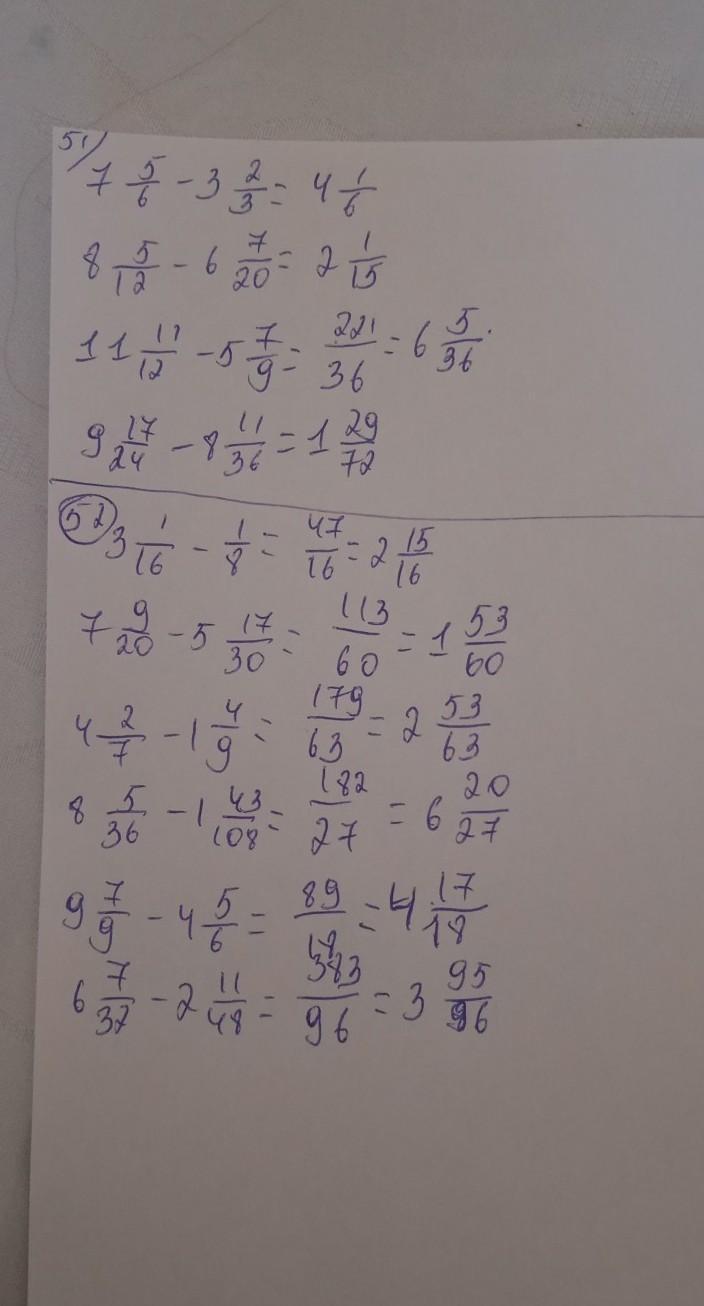 51)
7 5/6 - 3 2/3 = 4 1/6
8 5/12 - 6 7/20 = 2 1/15
11 11/12 - 5 7/9 = 221/36 = 6 5/36.
9 17/24 - 8 11/36 = 1 29/72
52 3 1/16 - 1/8 = 47/16 = 2 15/16
7 9/20 - 5 17/30 = 113/60 = 1 53/60
4 2/7 - 1 4/9 = 179/63 = 2 53/63
8 5/36 - 1 43/108 = 182/27 = 6 20/27
9 7/9 - 4 5/6 = 89/18 = 4 17/18
6 7/32 - 2 11/48 = 383/96 = 3 95/96